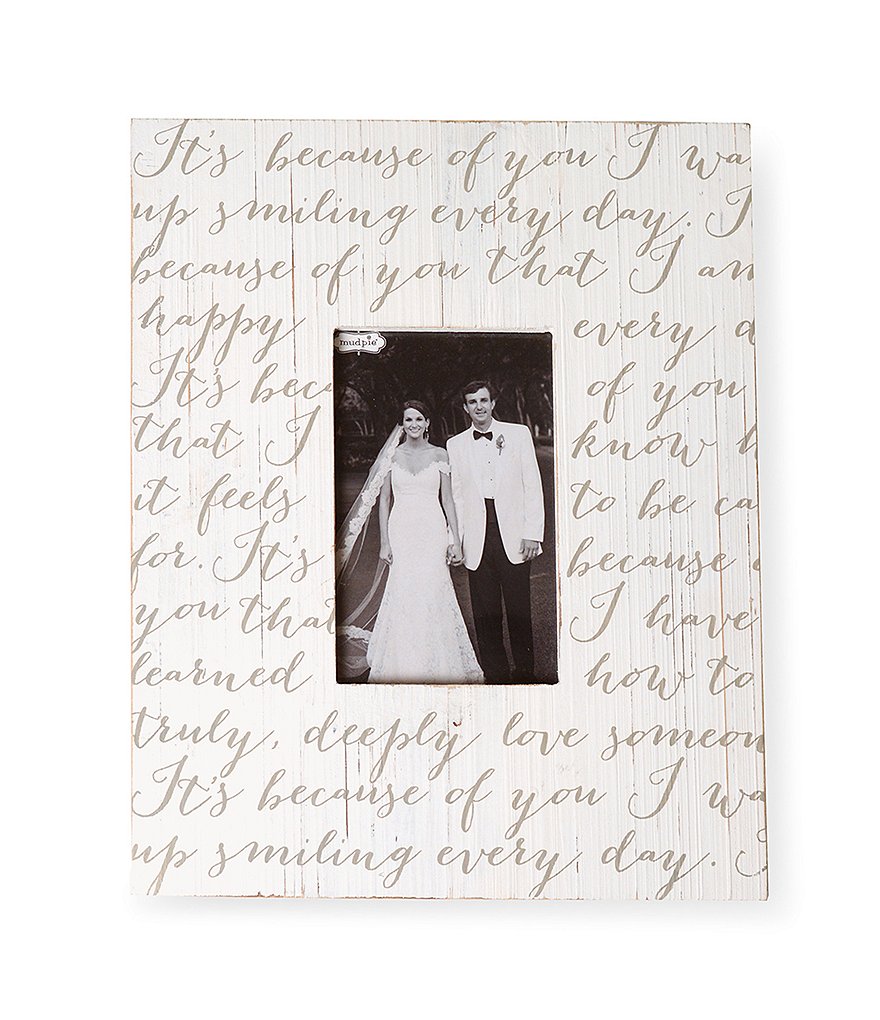 It's because of you I wa
up smiling every day. I
because of you that I am
happy every d
mudpie
It's bec of you
that I know h
it feels to be ca
for. It's because o
you that I have
learned how to
truly, deeply love someon
It's because of you I wa
up smiling every day. I